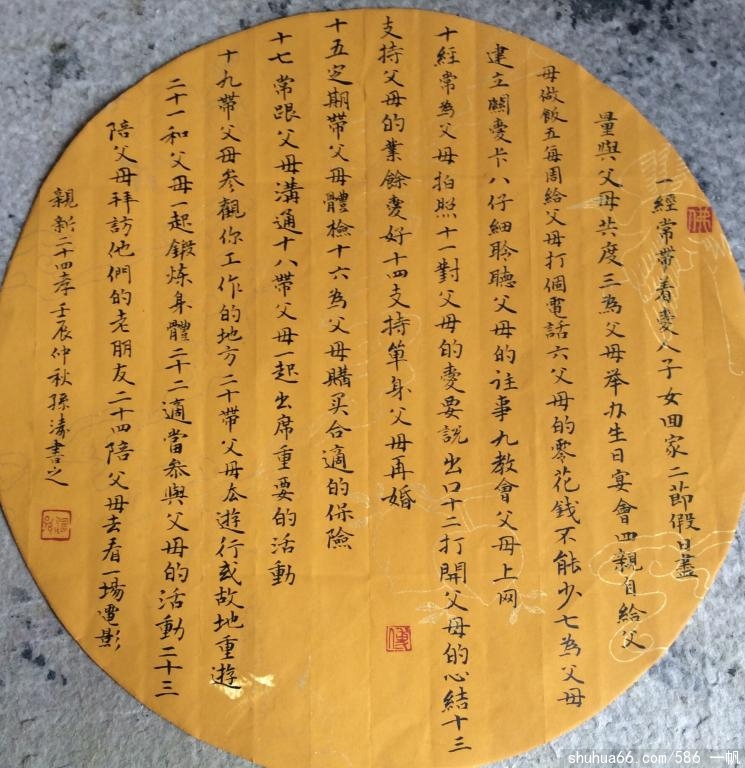 一經常帶着愛人子女回家二節假日盡
量與父母共度三為父母举办生日宴會四親自給父
母做飯五每周給父母打個電話六父母的零花錢不能少七為父母
建立關愛卡八仔細聆聽父母的往事九教會父母上网
十經常為父母拍照十一對父母的愛要說出口十二打開父母的心結十三
支持父母的業餘愛好十四支持单身父母再婚
十五定期帶父母體檢十六為父母購买合適的保險
十七常跟父母溝通十八帶父母一起出席重要的活動
十九帶父母參觀你工作的地方二十帶父母去遊行或故地重遊
二十一和父母一起鍛炼身體二十二適當參與父母的活動二十三
陪父母拜訪他們的老朋友二十四陪父母去看一場電影
親新二十四孝壬辰仲秋孫濤書之
shuhua66.com/586 一帆